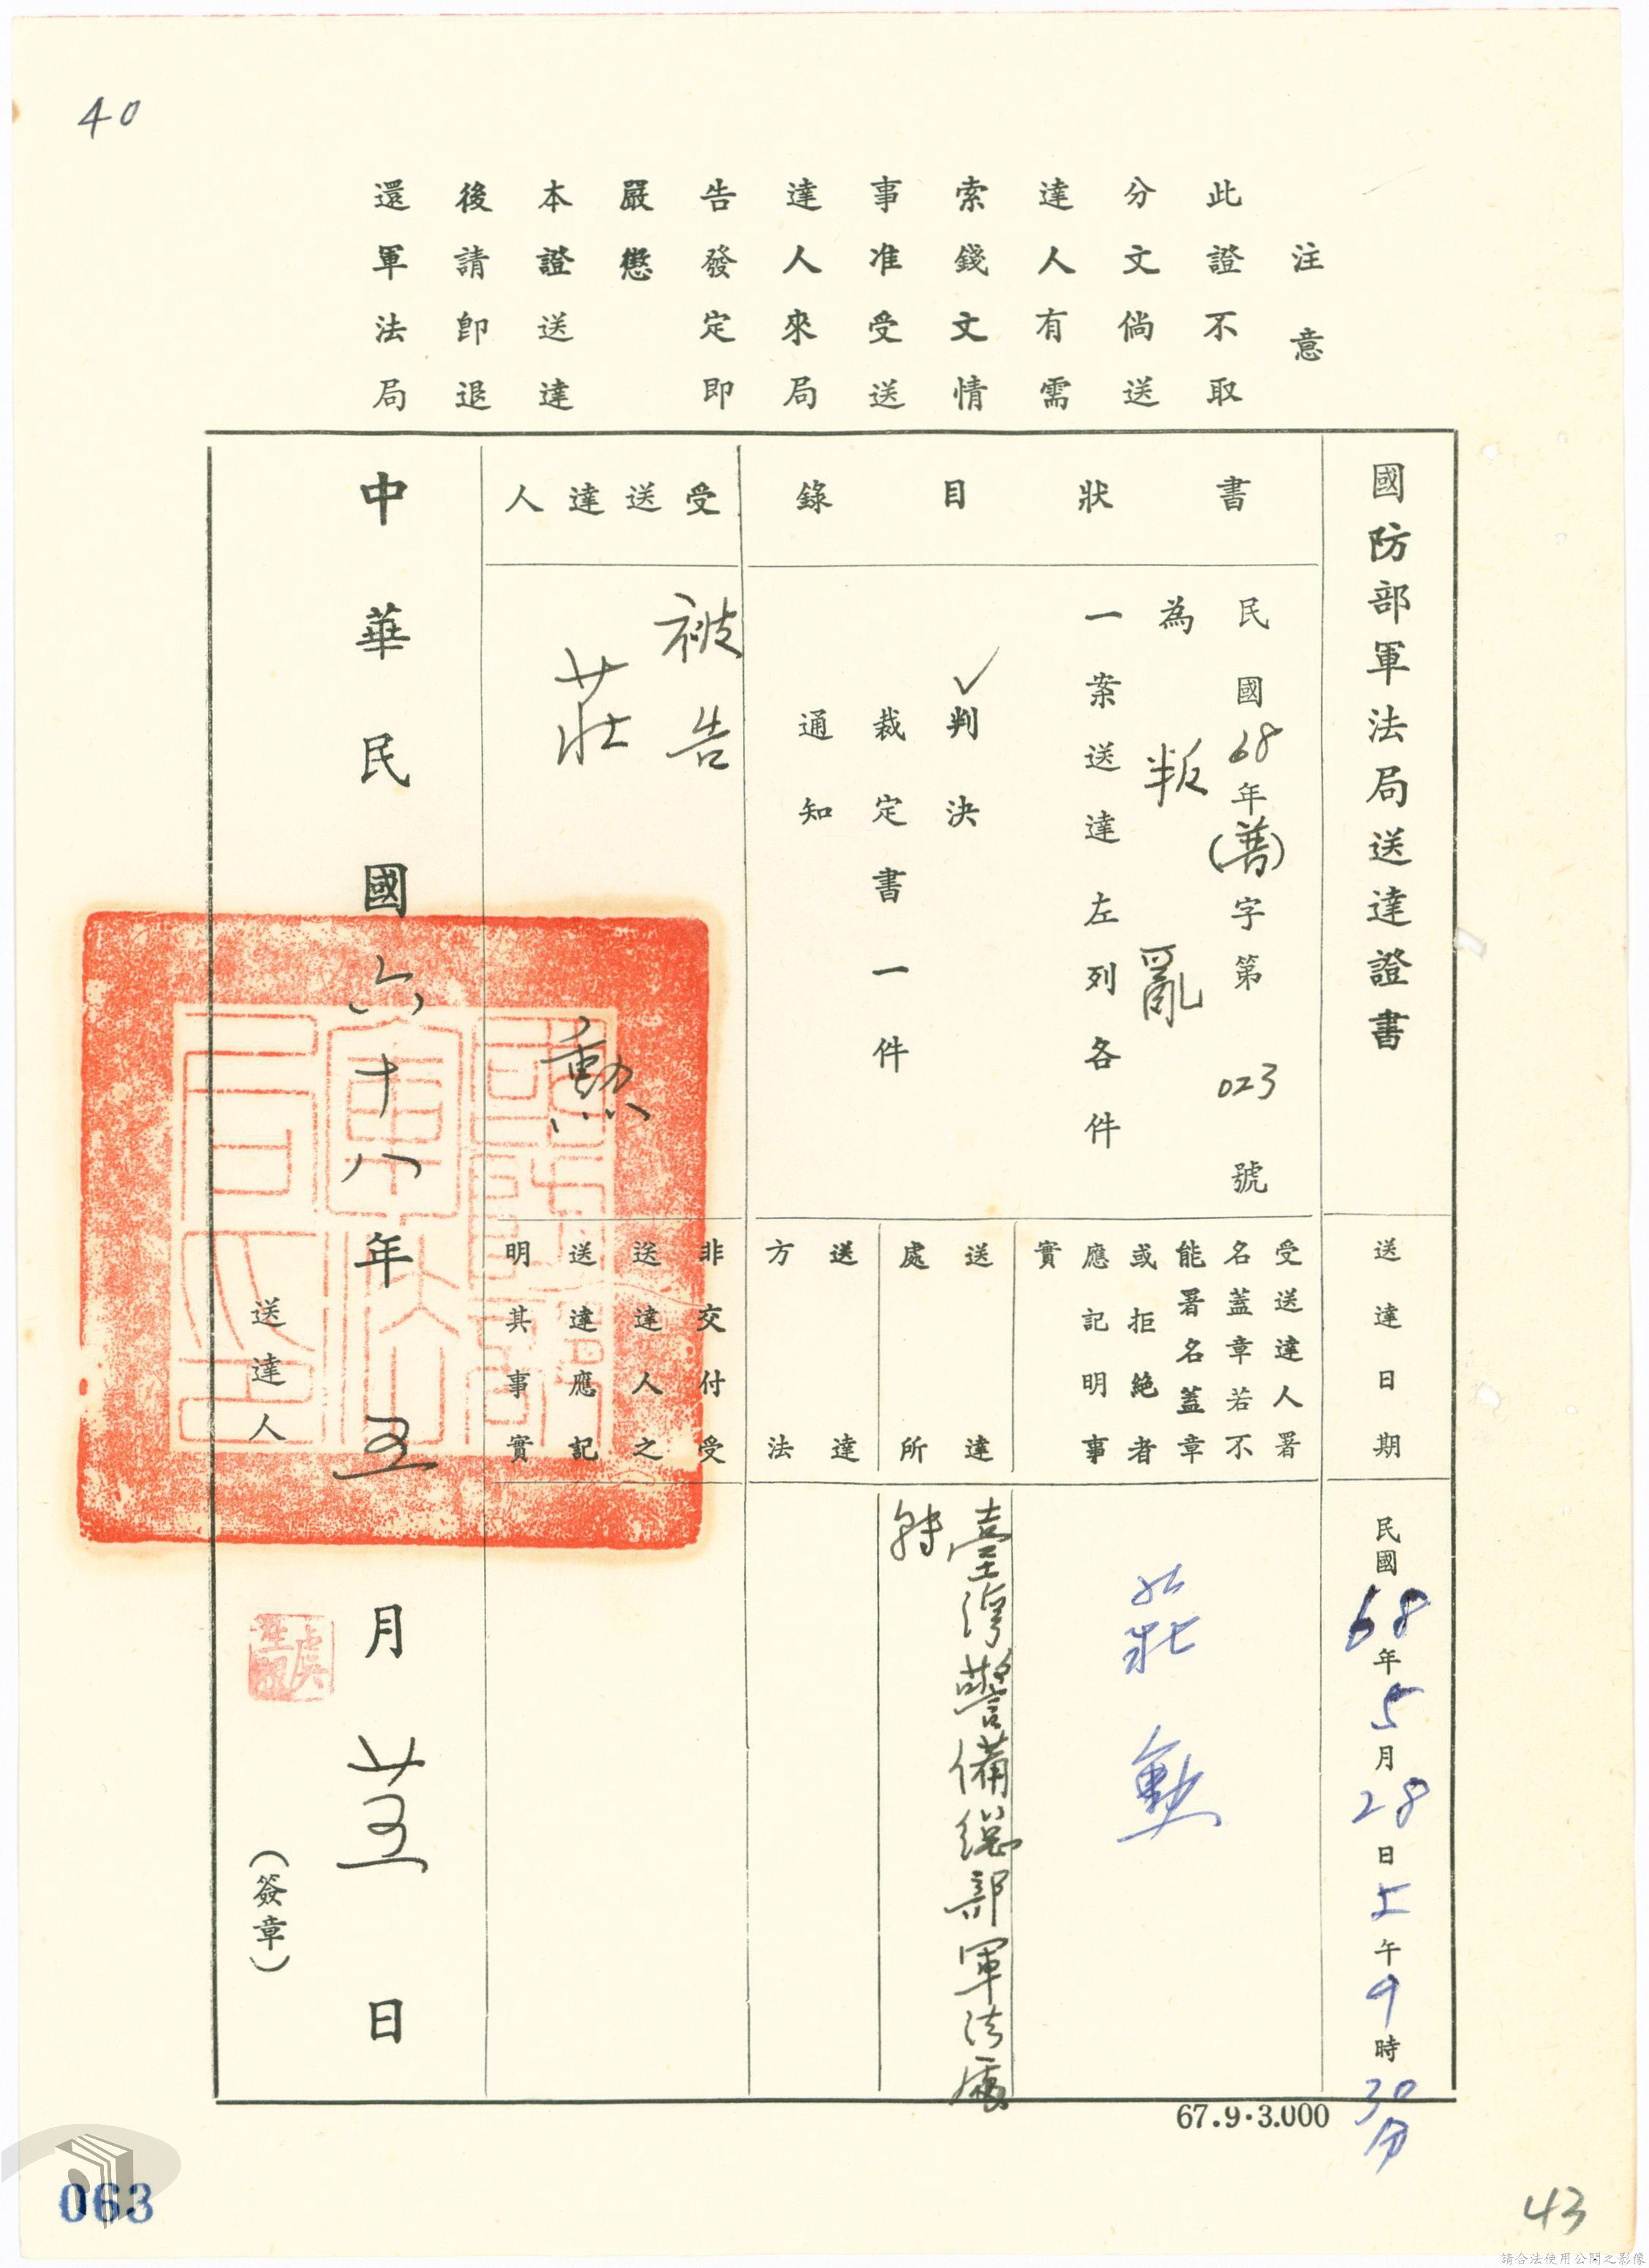 40
注意
此證不取
分文倘送
達人有需
索錢文情
事准受送
達人來局
告發定即
嚴懲
本證送達
後請即退
還軍法局
國防部軍法局送達證書
送達日期
民國68年5月28日上午9時30分
書狀目錄
民國68年(普)字第023號
為叛亂
一案送達左列各件
✓判決
裁定書一件
通知
受送達人署
名蓋章若不
能署名蓋章
或拒絕者
應記明事
實
莊勳
送達
處所
臺灣警備總部軍法處
轉
送達
方法
受送達人
被告
莊勳
非交付受
送達人之
送達應記
明其事實
中華民國六十八年五月廿五日
送達人
(簽章)
67.9.3.000
063
43
請合法使用公開之影像